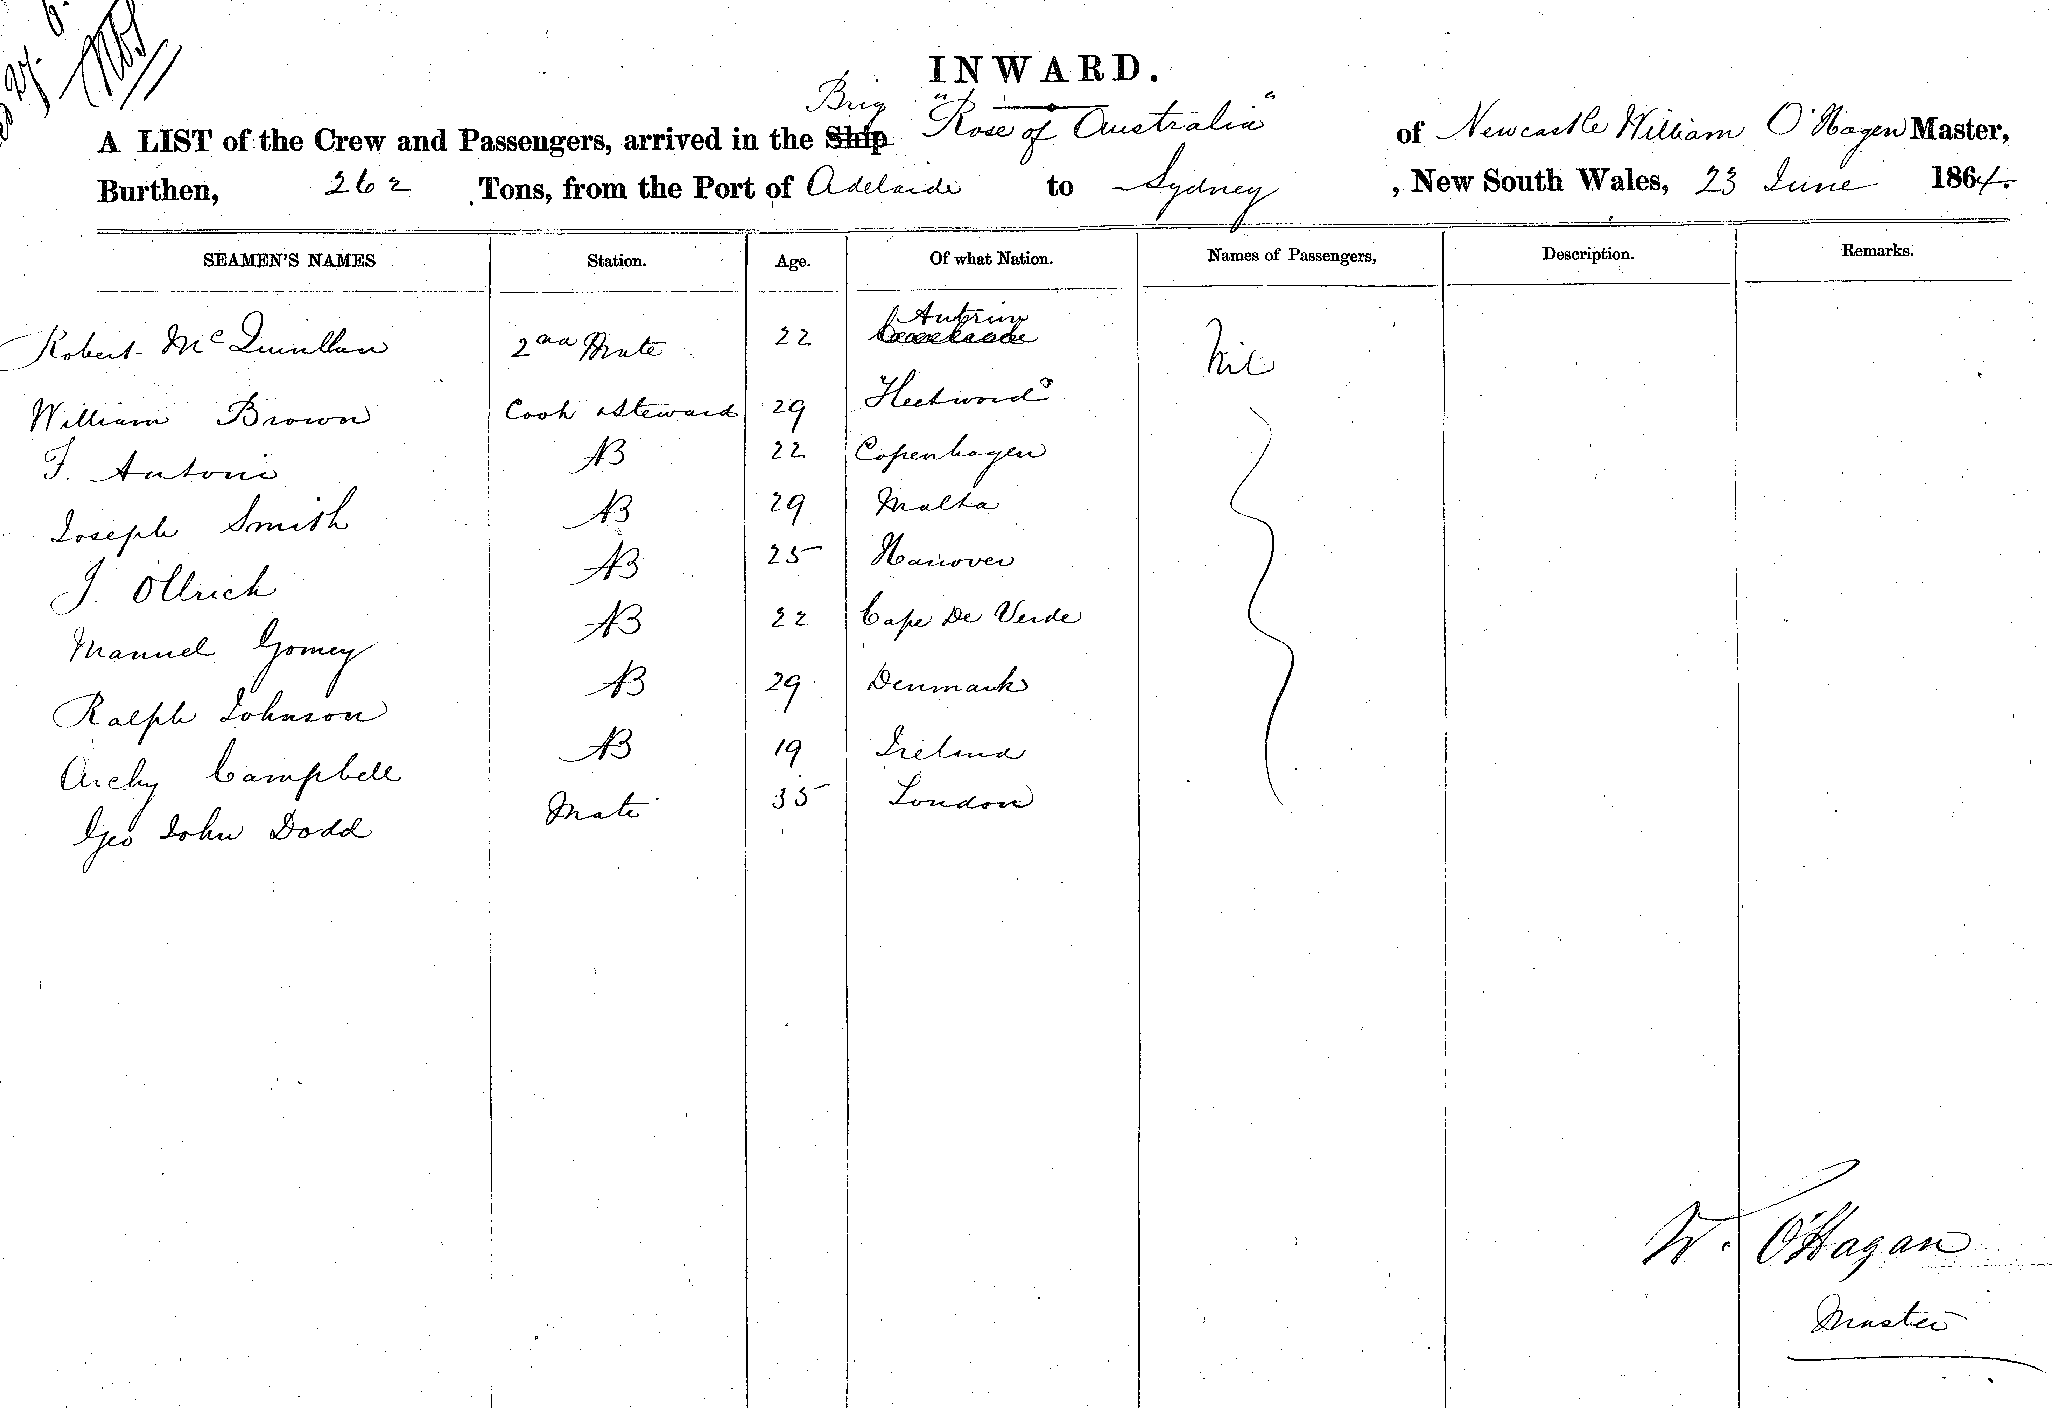 INWARD.
Brig "Rose of Australia"
A LIST of the Crew and Passengers, arrived in the Ship of Newcastle William O'Hagen Master,
Burthen, 262 Tons, from the Port of Adelaide to Sydney, New South Wales, 23 June 1864.
SEAMEN'S NAMES Station. Age. Of what Nation. Names of Passengers, Description. Remarks.
Robert McQuillan 2nd Mate 22 Antrim Nil
William Brown Cook & Steward 29 Fleetwood
F. Antoni AB 22 Copenhagen
Joseph Smith AB 29 Malta
J. Ollrich AB 25 Hanover
Manuel Gomey AB 22 Cape De Verde
Ralph Johnson AB 29 Denmark
Archy Campbell AB 19 Ireland
Geo John Dodd Mate 35 London
W. O'Hagan
Master